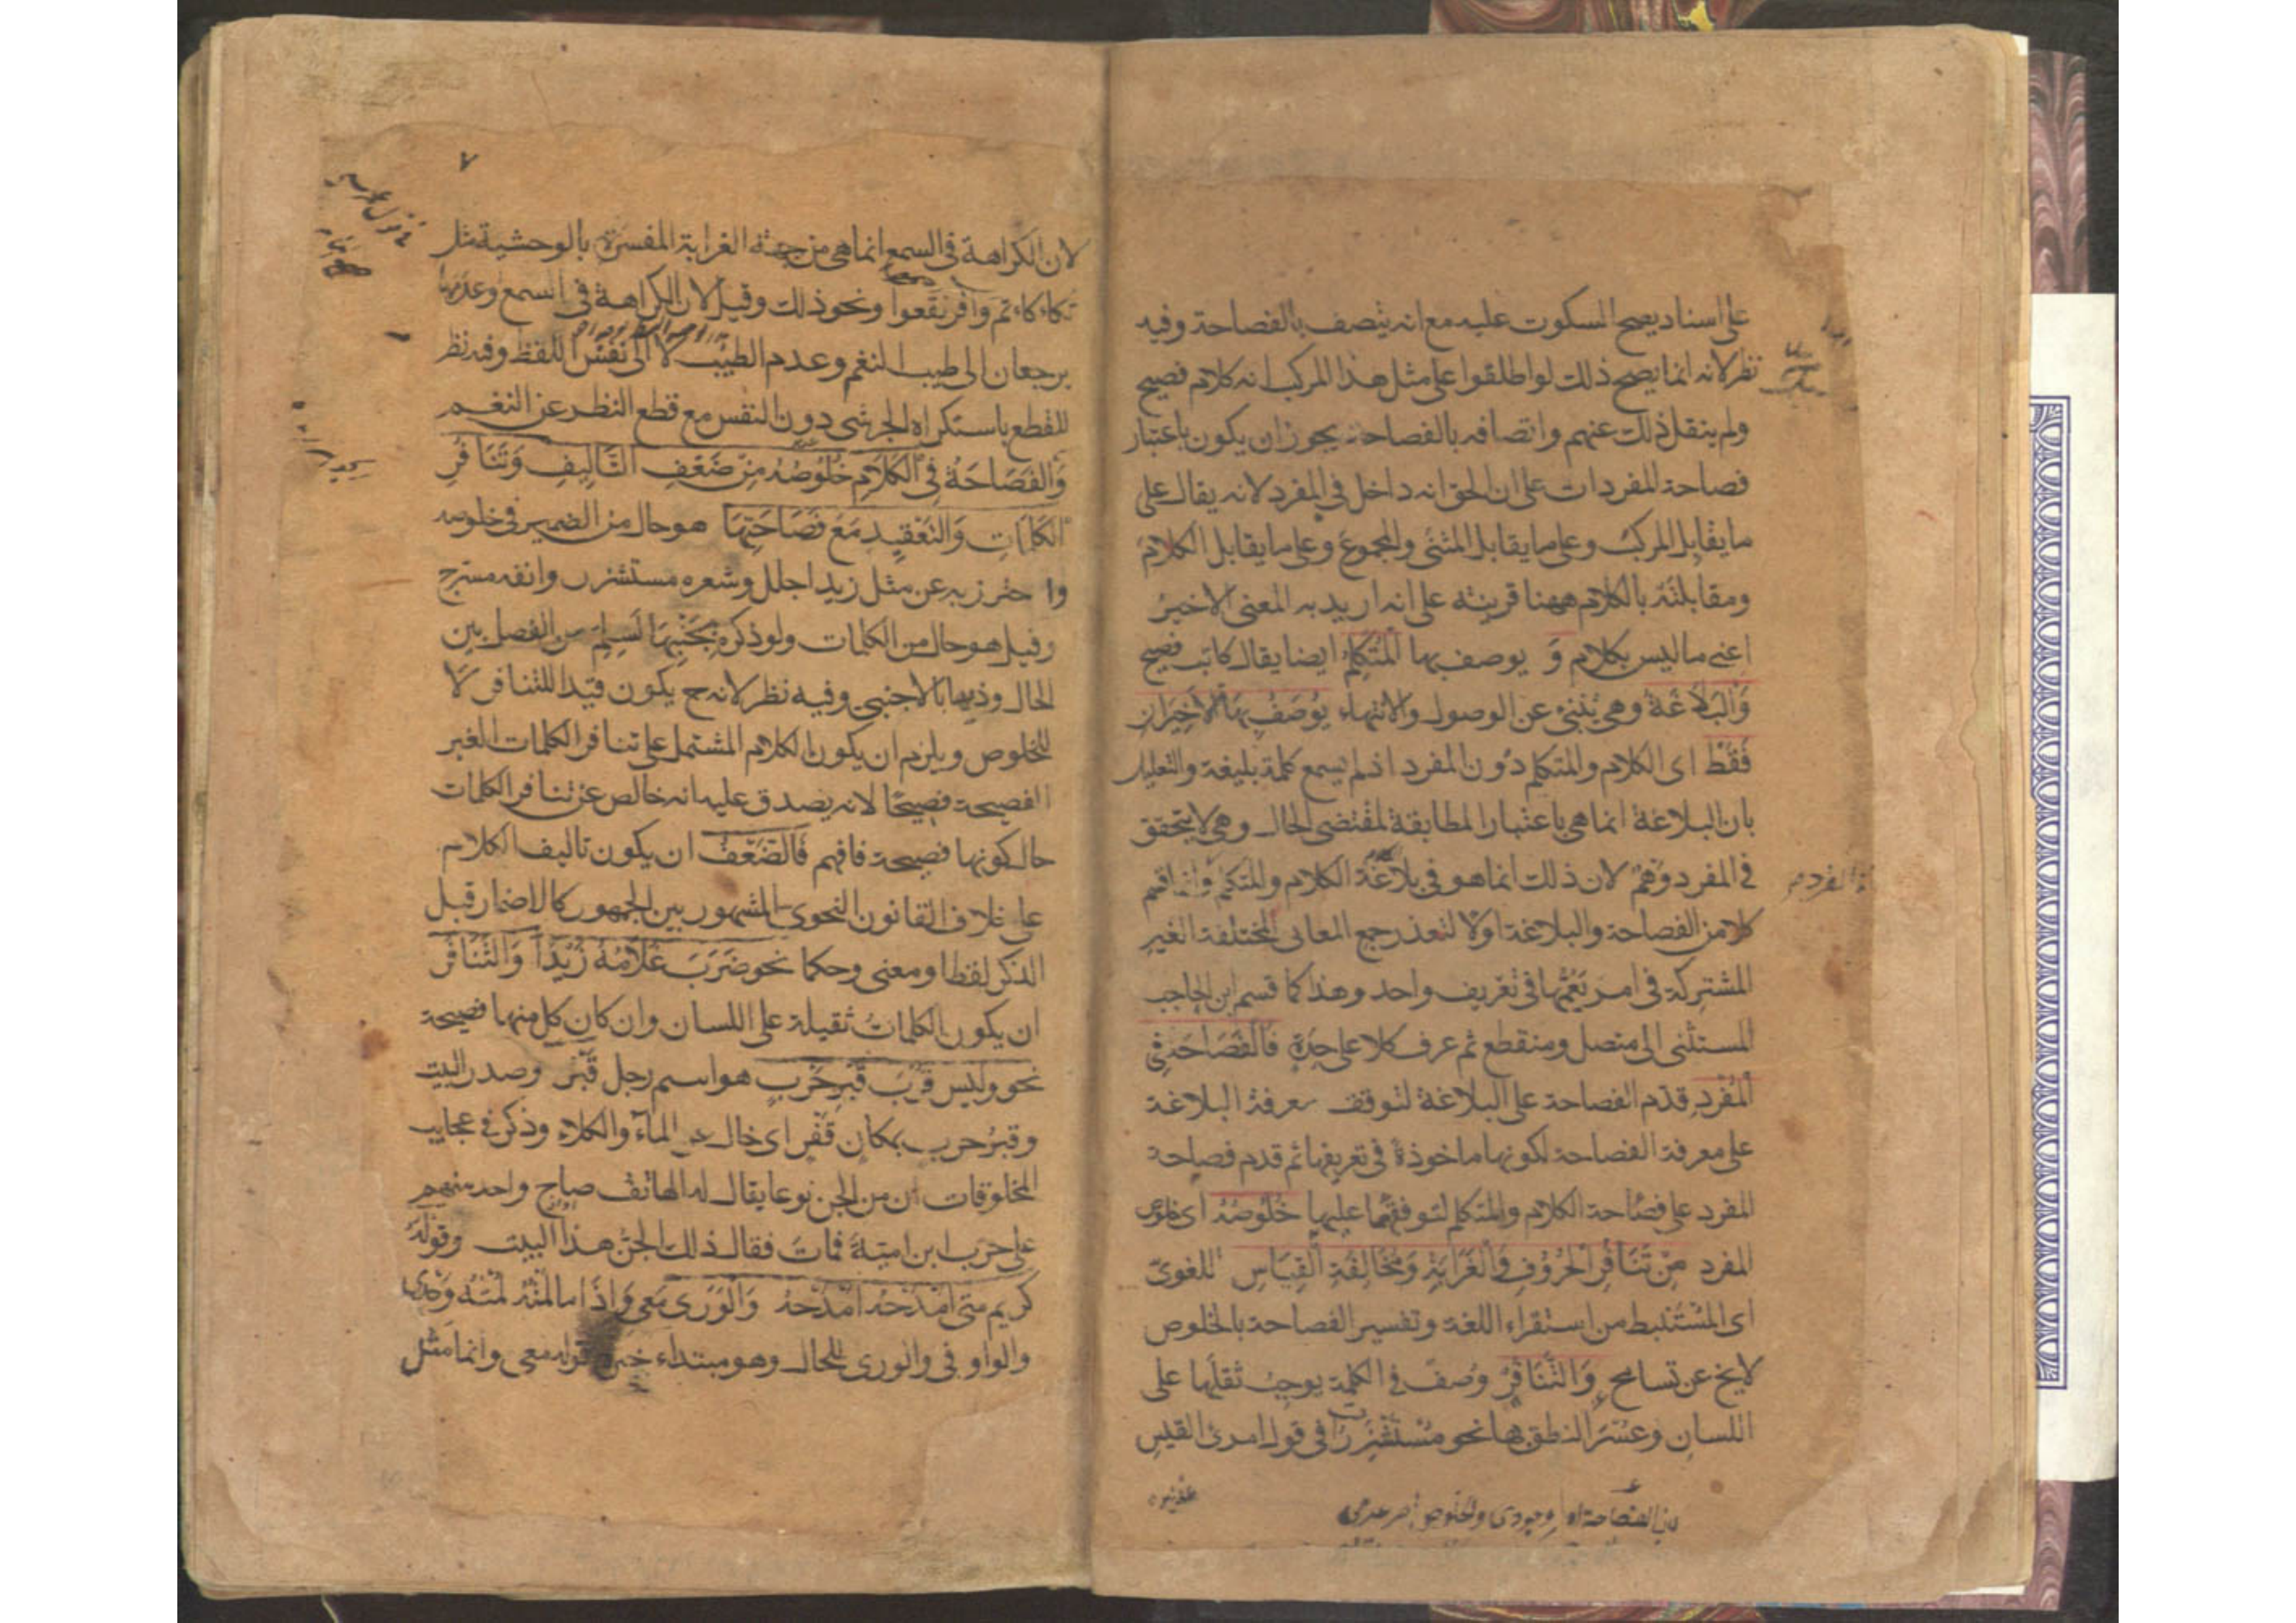 على اسناد يصح السكوت عليه مع انه يتصف بالفصاحة وفيه
نظر لانه انما يصح ذلك لو اطلقوا على مثل هذا المركب انه كلام فصيح
ولم ينقل ذلك عنهم واتصافه بالفصاحة يجوز ان يكون باعتبار
فصاحة المفردات على ان الحق انه داخل في المفرد لانه يقال على
ما يقابل المركب وعلى ما يقابل المثنى والمجموع وعلى ما يقابل الكلام
ومقابلته بالكلام ههنا قرينة على انه اريد به المعنى الاخير
اعني ما ليس بكلام وَ يوصف بها المُتَكَلِمُ ايضا يقال كاتب فصيح
وَالبَلَاغَةُ وهي تُنبئ عن الوصول والانتهاء يُوصَفُ بِهَا الاَخِيرَانِ
فَقَطْ اى الكلام والمتكلم دون المفرد اذ لم يسمع كلمة بليغة والتعليل
بان البلاغة انما هي باعتبار المطابقة لمقتضى الحال وهي لا يتحقق
في المفرد وَهَمٌ لان ذلك انما هو في بلاغة الكلام والمتكلم وانما قسم
كلا من الفصاحة والبلاغة اولا لتعذر جمع المعانى المختلفة الغير
المشتركة في امر يَعُمُّها في تعريف واحد وهذا كما قسم ابن الحاجب
المستثنى الى متصل ومنقطع ثم عرف كلا على حِدَةٍ فَالفَصَاحَة فِى
المُفْرَدِ قدّم الفصاحة على البلاغة لتوقف معرفة البلاغة
على معرفة الفصاحة لكونها ماخوذةً في تعريفها ثم قدم فصاحة
المفرد على فصاحة الكلام والمتكلم لتوقفهما عليها خُلُوصُهُ اى خلوص
المفرد مِنْ تَنَافُرِ الحُرُوفِ وَالغَرَابَةِ وَمُخَالِفَةِ القِيَاسِ اللغوىّ
اى المُسْتَنبط من استقراء اللغة وتفسير الفصاحة بالخلوص
لا يخ عن تسامح وَالتَّنَافُرُ وَصْفٌ في الكلمة يوجبُ ثقلَها على
اللسان وعُسْرَ النطق بها نحو مُسْتَشْزِرَاتٌ في قول امرئ القيس
لان الفصاحة امر وجودى والخلوص امر عدمى
٧
لان الكراهة في السمع انما هي من جهة الغرابة المفسرة بالوحشية مثل
تكاءكاءتم وافرنقعوا ونحو ذلك وقيل لان الكراهة في السمع وعدمها
يرجعان الى طيب النغم وعدم الطيب لا الى نفس اللفظ وفيه نظر
للقطع باستكراه الجرشى دون النفس مع قطع النظر عن النغم
وَالفَصَاحَةُ فِي الكَلَامِ خُلُوصُهُ مِنْ ضَعْفِ التَّالِيفِ وَتَنَافُرِ
الكَلِمَاتِ وَالتَّعْقِيدِ مَعَ فَصَاحَتِهَا هو حال من الضمير في خلوصه
واحترز به عن مثل زيد اجلل وشعره مستشزر وانفه مسرج
وقيل هو حال من الكلمات ولو ذكره بِجَنْبِهَا لَسَلِمَ من الفصل بين
الحال وذيها بالاجنبي وفيه نظر لانه ح يكون قيدا للتنافر لا
للخلوص ويلزم ان يكون الكلام المشتمل على تنافر الكلمات الغير
الفصيحة فصيحًا لانه يصدق عليه انه خالص عن تنافر الكلمات
حال كونها فصيحة فافهم فَالضَّعْفُ ان يكون تاليف الكلام
على خلاف القانون النحوى المشهور بين الجمهور كالاضمار قبل
الذكر لفظا ومعنى وحكما نحو ضَرَبَ غُلَامُهُ زَيْدًا وَالتَّنَافُرُ
ان يكون الكلماتُ ثقيلة على اللسان وان كان كل منها فصيحة
نحو وليس قُرْبَ قَبرِ حَرْبٍ هو اسم رجل قَبْرٌ وصدر البيت
وقبرُ حرب بمكان قَفْرٍ اى خال عن الماء والكلاء وذكر في عجايب
المخلوقات ان من الجن نوعا يقال له الهاتف صاح واحد منهم
على حرب ابن اميّة فمات فقال ذلك الجن هذا البيت وقولُه
كريم متى امْدَحْهُ امْدَحْهُ وَالوَرَى مَعي وَاِذَا ما لُمْتُه لُمْتُه وَحْدى
والواو في والورى للحال وهو مبتداء خبره قوله معى وانما مثّل